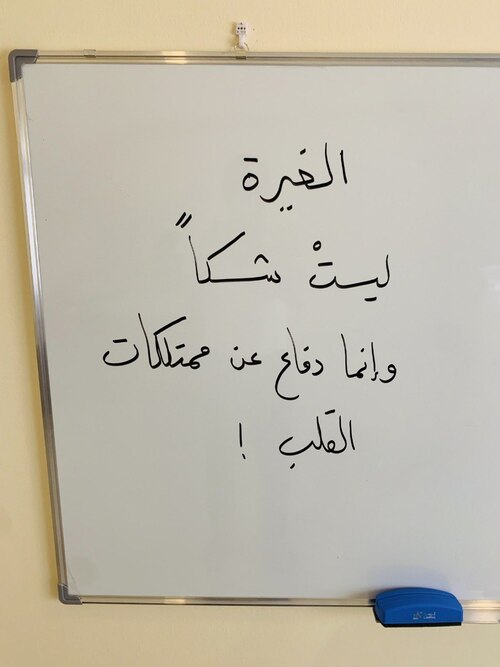 الغيرة
ليستْ شكاً
وإنما دفاع عن ممتلكات
القلب !